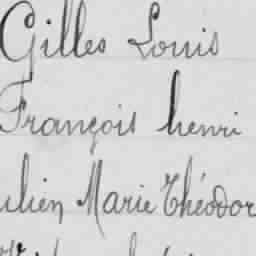 Gilles Louis
François henri
ulien Marie Théodor